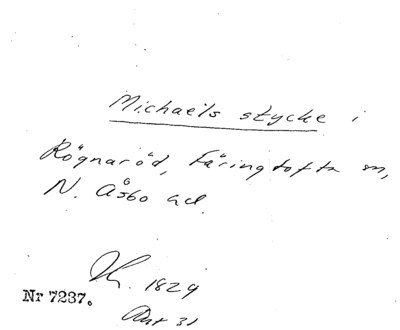 Michaels stycke i
Rögnaröd, Färingtofta sn,
N. Åsbo hd.
1829
Nr 7237.
31